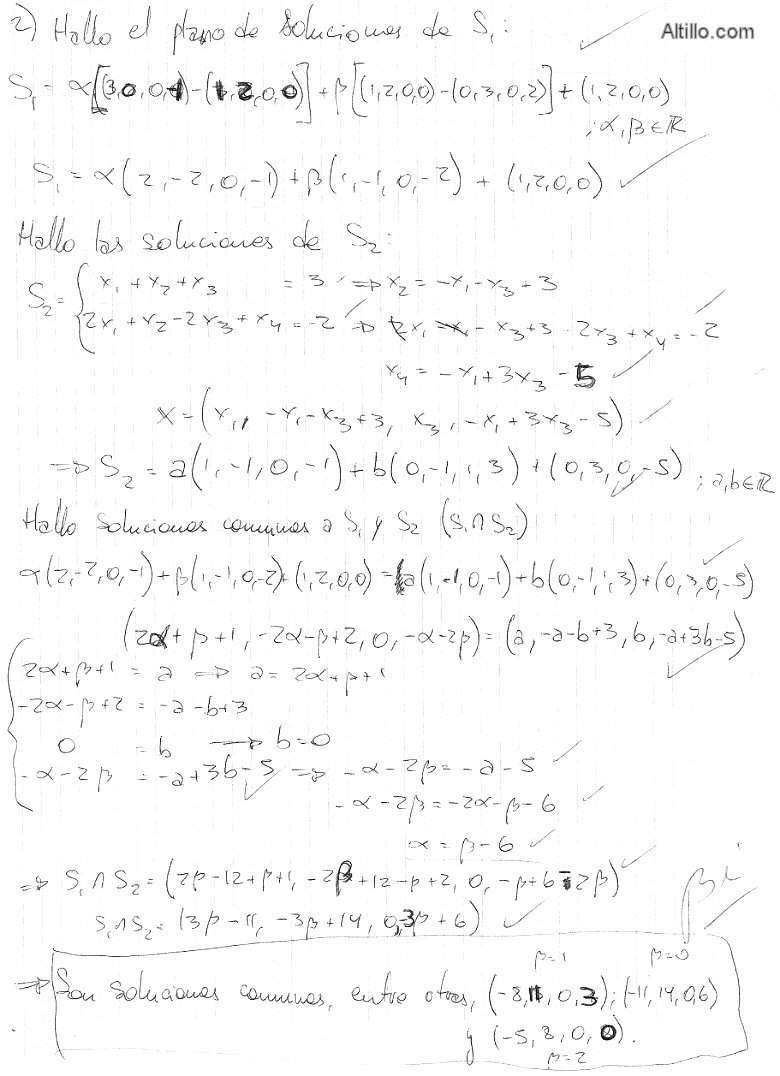 2) Hallo el plano de soluciones de S₁:
Altillo.com
S₁ = α[(3,0,0,-1)-(1,2,0,0)] + β[(1,2,0,0)-(0,3,0,2)] + (1,2,0,0)
; α, β ∈ ℝ
S₁ = α(2,-2,0,-1) + β(1,-1,0,-2) + (1,2,0,0)
Hallo las soluciones de S₂:
S₂ = { x₁ + x₂ + x₃ = 3 ⇒ x₂ = -x₁ - x₃ + 3
2x₁ + x₂ - 2x₃ + x₄ = -2 ⇒ 2x₁ - x₁ - x₃ + 3 - 2x₃ + x₄ = -2
x₄ = -x₁ + 3x₃ - 5
X = (x₁, -x₁ - x₃ + 3, x₃, -x₁ + 3x₃ - 5)
⇒ S₂ = a(1,-1,0,-1) + b(0,-1,1,3) + (0,3,0,-5) ; a,b ∈ ℝ
Hallo soluciones comunes a S₁ y S₂ (S₁∩S₂)
α(2,-2,0,-1) + β(1,-1,0,-2) + (1,2,0,0) = a(1,-1,0,-1) + b(0,-1,1,3) + (0,3,0,-5)
(2α + β + 1, -2α - β + 2, 0, -α - 2β) = (a, -a - b + 3, b, -a + 3b - 5)
{ 2α + β + 1 = a ⇒ a = 2α + β + 1
-2α - β + 2 = -a - b + 3
0 = b → b = 0
-α - 2β = -a + 3b - 5 ⇒ -α - 2β = -a - 5
-α - 2β = -2α - β - 6
α = β - 6
⇒ S₁∩S₂ = (2β - 12 + β + 1, -2β + 12 - β + 2, 0, -β + 6 - 2β)
S₁∩S₂ = (3β - 11, -3β + 14, 0, -3β + 6)
β=1 β=0
⇒ Son soluciones comunes, entre otras, (-8,11,0,3); (-11,14,0,6)
y (-5,8,0,0).
β=2